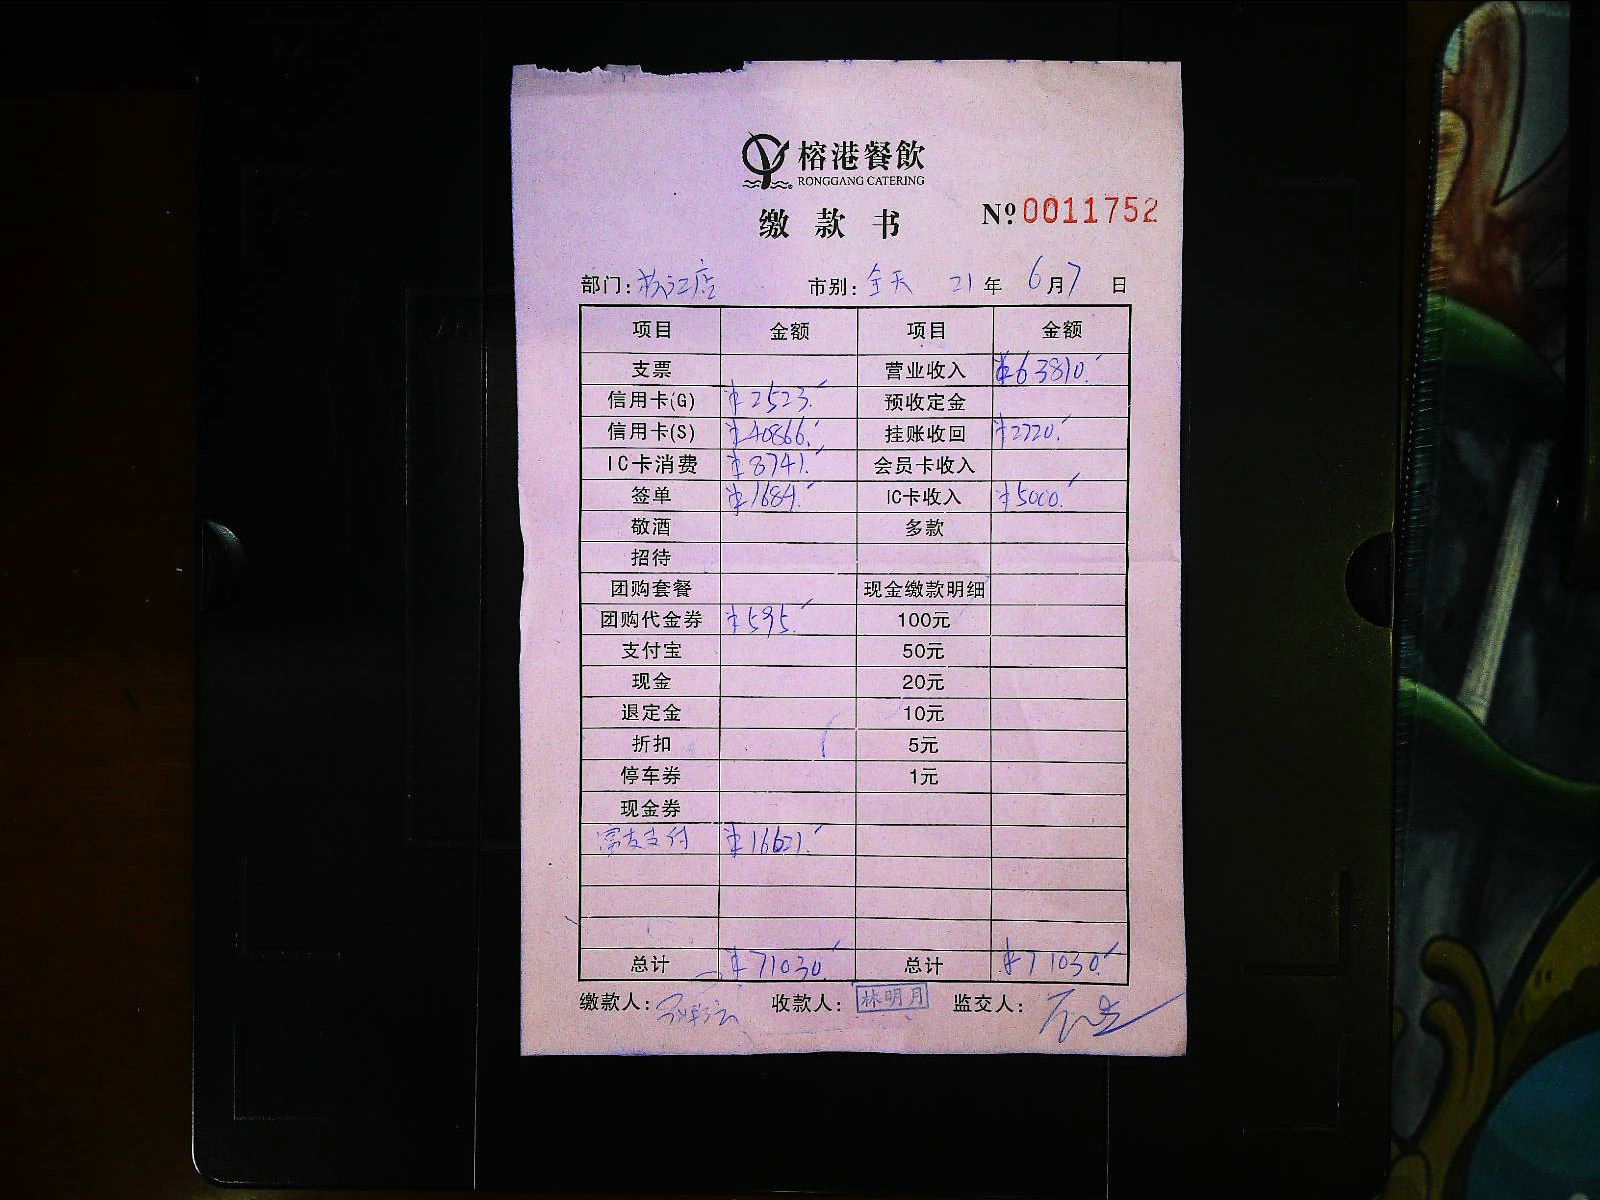 榕港餐飲
RONGGANG CATERING
缴款书 Nº 0011752
部门: 松江店 市别: 全天 21年 6月7日
项目 金额 项目 金额
支票 营业收入 ¥63810.
信用卡(G) ¥2523. 预收定金
信用卡(S) ¥40866. 挂账收回 ¥2220.
IC卡消费 ¥8741. 会员卡收入
签单 ¥1684. IC卡收入 ¥5000.
敬酒 多款
招待
团购套餐 现金缴款明细
团购代金券 ¥595. 100元
支付宝 50元
现金 20元
退定金 10元
折扣 5元
停车券 1元
现金券
支付 ¥16621.
总计 ¥71030. 总计 ¥71030.
缴款人: 收款人: 林明月 监交人: